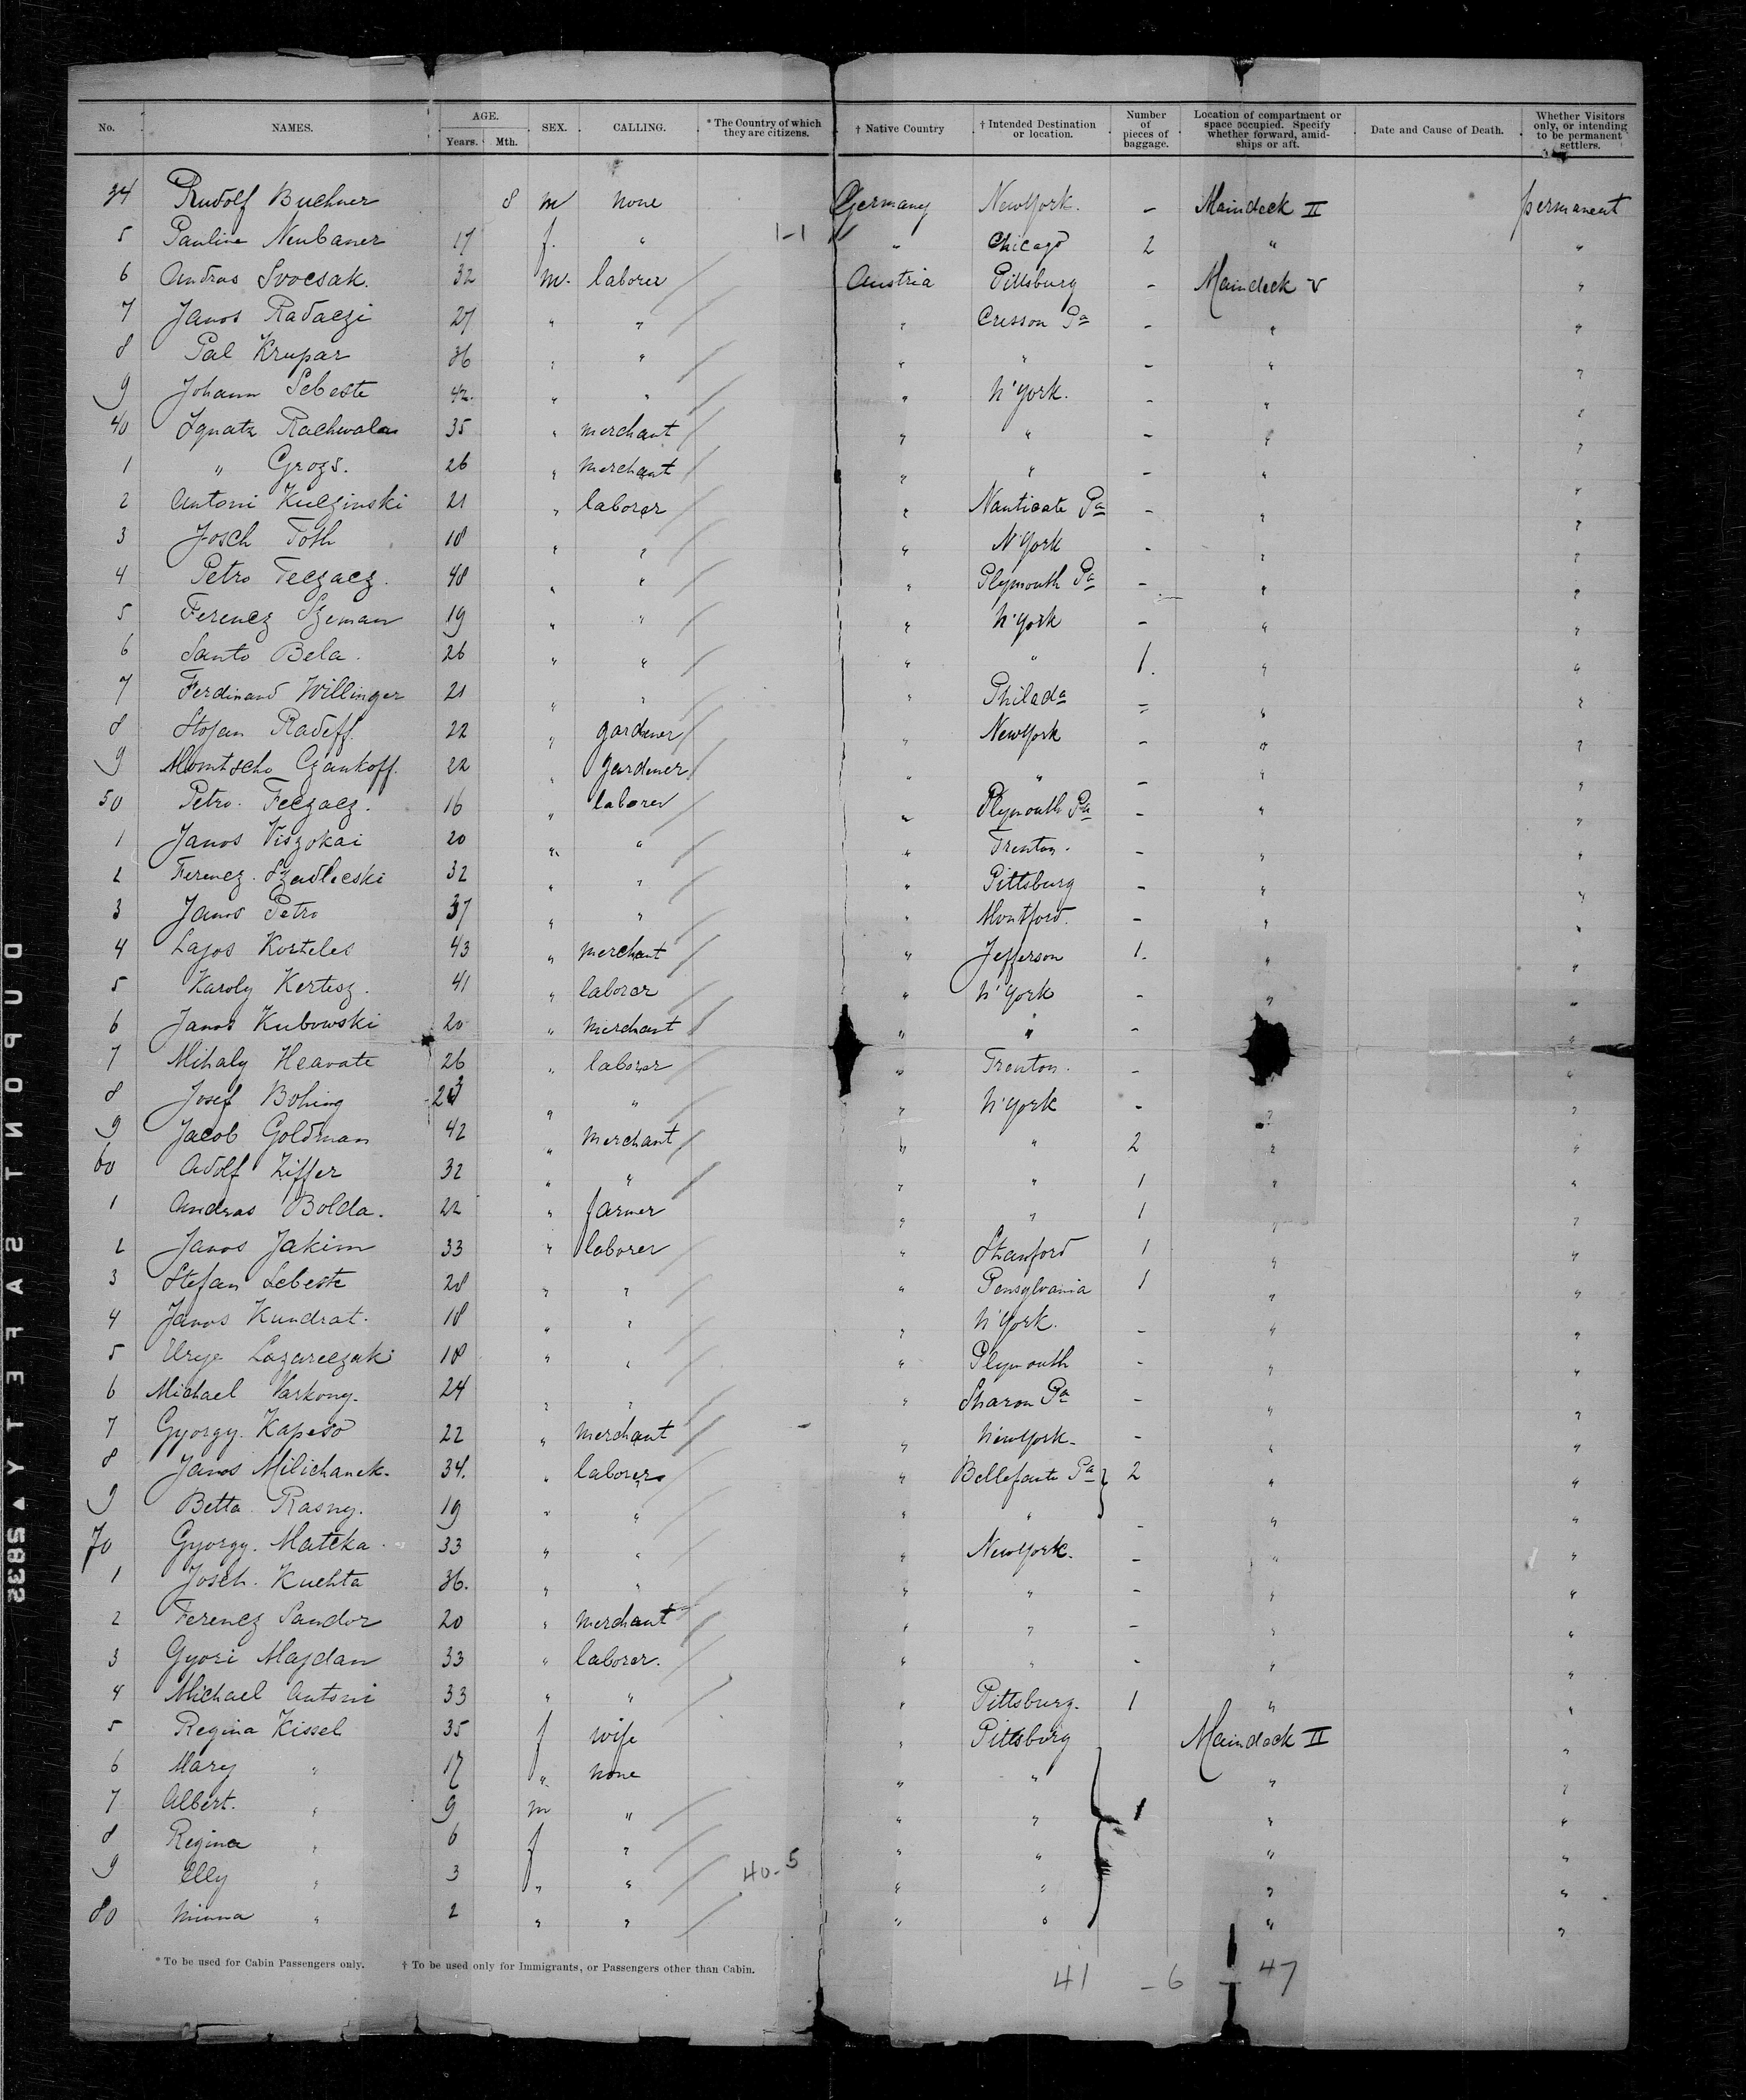 No. NAMES. AGE. Years. Mth. SEX. CALLING. * The Country of which they are citizens. † Native Country † Intended Destination or location. Number of pieces of baggage. Location of compartment or space occupied. Specify whether forward, amidships or aft. Date and Cause of Death. Whether Visitors only, or intending to be permanent settlers.
34 Rudolf Buchner 8 m none Germany New York. – Maindeck II permanent
5 Pauline Neubauer 17 f. " 1-1 " Chicago 2 " "
6 Andras Svocsak. 32 m. laborer Austria Pittsburg – Maindeck V "
7 Janos Radaczi 27 " " " Cresson Pa – " "
8 Pal Krupar 36 " " " " – " "
9 Johann Sebeste 42. " " " N'York. – " "
40 Ignatz Rachwalen 35 " merchant " " – " "
1 " Grozs. 26 " merchant " " – " "
2 Antoni Kulczinski 21 " laborer " Nanticate Pa – " "
3 Josch Toth 18 " " " N'York – " "
4 Petro Feczacz. 48 " " " Plymouth Pa – " "
5 Ferencz Szeman 19 " " " N'York – " "
6 Santo Bela. 26 " " " " 1. " "
7 Ferdinand Willinger 21 " " " Philada – " "
8 Stojan Radeff. 22 " gardener " New York – " "
9 Momtscho Czankoff. 22 " gardener " " – " "
50 Petro. Feczacz. 16 " laborer " Plymouth Pa – " "
1 Janos Viszokai 20 " " " Trenton. – " "
2 Ferencz. Szedlecski 32 " " " Pittsburg – " "
3 Janos Petro 37 " " " Montford. – " "
4 Lajos Korteles 43 " merchant " Jefferson 1. " "
5 Karoly Kertesz. 41 " laborer " N'York – " "
6 Janos Kubowski 20 " merchant " " – "
7 Mihaly Heavate 26 " laborer " Trenton. – "
8 Josef Bohing " " " N'York – " "
9 Jacob Goldman 42 " merchant " " 2 " "
60 Adolf Ziffer 32 " " " " 1 " "
1 Andras Bolda. 22 " farmer " " 1 " "
2 Janos Jakim 33 " laborer " Stanford 1 " "
3 Stefan Sebeste 28 " " " Pensylvania 1 " "
4 Janos Kundrat. 18 " " " N'York. – " "
5 Lazareczak 18 " " " Plymouth – " "
6 Michael Varkony. 24 " " " Sharon Pa – " "
7 Gyorgy. Kapeso 22 " merchant " New York – " "
8 Janos Milichanek. 34. " laborer " Bellefonte Pa 2 " "
9 Betta Rasny. 19 " " " " – " "
70 Gyorgy. Matcka. 33 " " " New York. – " "
1 Josch. Kuchta 36. " " " " – " "
2 Ferencz Sandor 20 " merchant " " – " "
3 Gyori Majdan 33 " laborer. " " – " "
4 Michael Antoni 33 " " " Pittsburg. 1 " "
5 Regina Kissel 35 f wife " Pittsburg Maindeck II "
6 Mary " 17 " none " " " "
7 Albert. " 9 m " " " 1 " "
8 Regina " 6 f " " " " "
9 Elly " 3 " " 40-5 " " " "
80 Minna " 2 " " " " " "
* To be used for Cabin Passengers only. † To be used only for Immigrants, or Passengers other than Cabin.
41 – 6 – 47
DUPONT SAFETY ▲ S83S